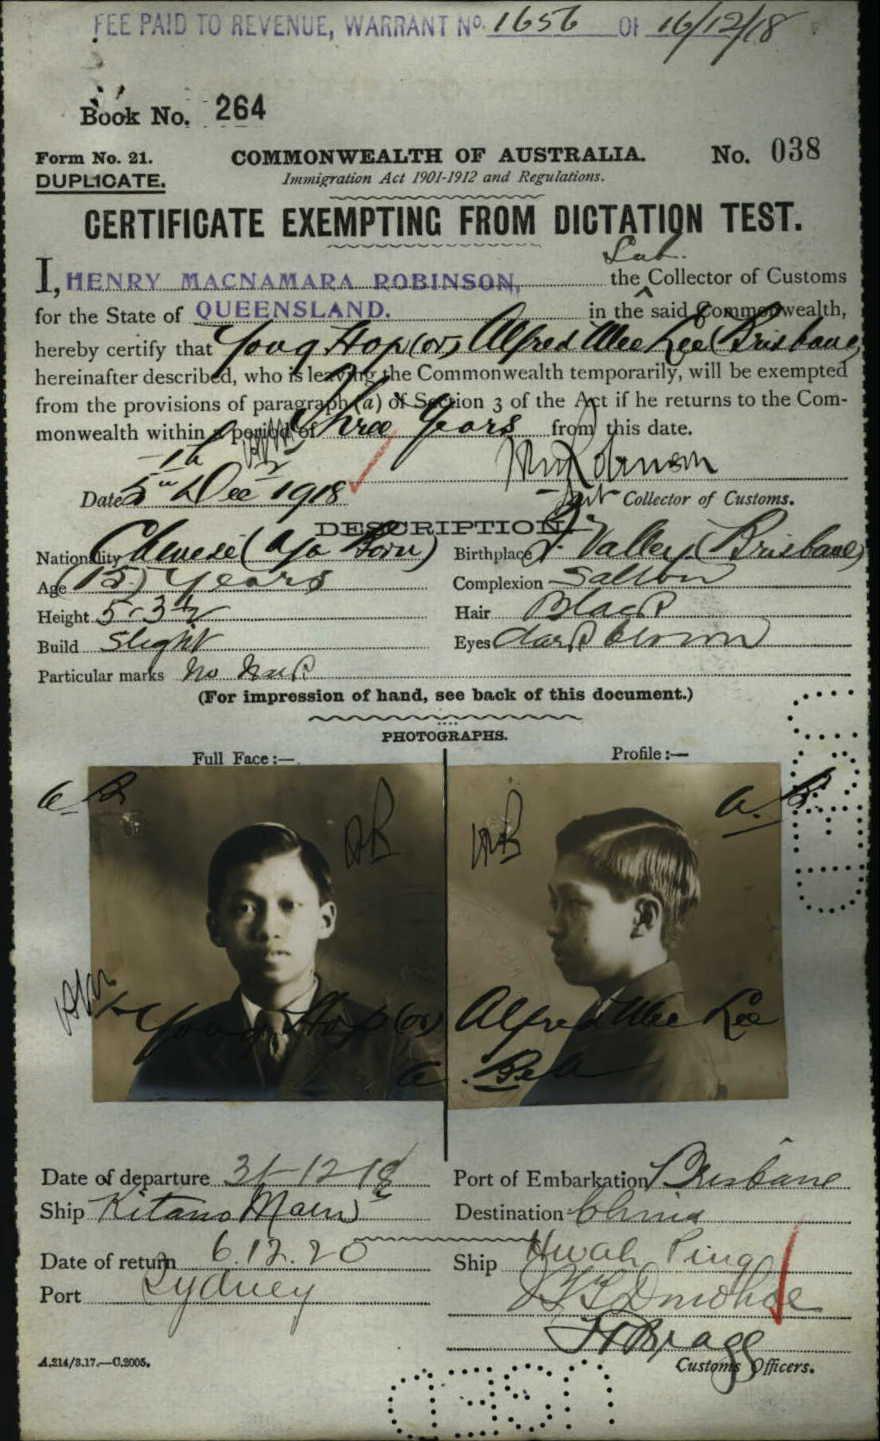 FEE PAID TO REVENUE, WARRANT No. 1656 OF 16/12/18
Book No. 264
Form No. 21. COMMONWEALTH OF AUSTRALIA. No. 038
DUPLICATE. Immigration Act 1901-1912 and Regulations.
CERTIFICATE EXEMPTING FROM DICTATION TEST.
Sub.
I, HENRY MACNAMARA ROBINSON, the Collector of Customs
for the State of QUEENSLAND. in the said Commonwealth,
hereby certify that Young Hop (or) Alfred Wee Lee (Brisbane)
hereinafter described, who is leaving the Commonwealth temporarily, will be exempted
from the provisions of paragraph (a) of Section 3 of the Act if he returns to the Com-
monwealth within a period of Three Years from this date.
HMRobinson
Date 5th Dec 1918 Collector of Customs.
DESCRIPTION.
Nationality Chinese (Aus Born) Birthplace Valley (Brisbane)
Age (15) Years Complexion Sallow
Height 5-3½ Hair Black
Build Slight Eyes dark brown
Particular marks no mark
(For impression of hand, see back of this document.)
PHOTOGRAPHS.
Full Face:— Profile:—
Young Hop (or) Alfred Wee Lee
Date of departure 31-12-18 Port of Embarkation Brisbane
Ship Kitano Maru Destination China
Date of return 6.12.20 Ship Hwah Ping
Port Sydney Donohoe
Bragg
A.214/3.17.—C.2005. Customs Officers.